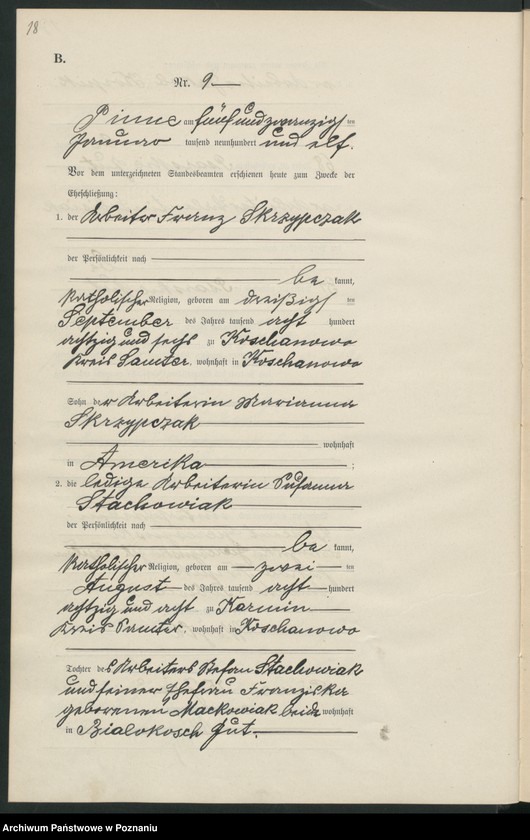 18
B.
Nr. 9
Pinne am fünfundzwanzigsten
Januar tausend neunhundert und elf.
Vor dem unterzeichneten Standesbeamten erschienen heute zum Zwecke der
Eheschließung:
1. der Arbeiter Franz Skrzypczak
der Persönlichkeit nach
be kannt,
katholischer Religion, geboren am dreißigsten
September des Jahres tausend acht hundert
achtzig und sechs zu Koschanowo
Kreis Samter, wohnhaft in Koschanowo
Sohn der Arbeiterin Marianna
Skrzypczak
wohnhaft
in Amerika ;
2. die ledige Arbeiterin Susanna
Stachowiak
der Persönlichkeit nach
be kannt,
katholischer Religion, geboren am zweiten
August des Jahres tausend acht hundert
achtzig und acht zu Karmin
Kreis Samter, wohnhaft in Koschanowo
Tochter des Arbeiters Stefan Stachowiak
und seiner Ehefrau Franziska
geborenen Mackowiak beide wohnhaft
in Bialokosch Gut.
Archiwum Państwowe w Poznaniu